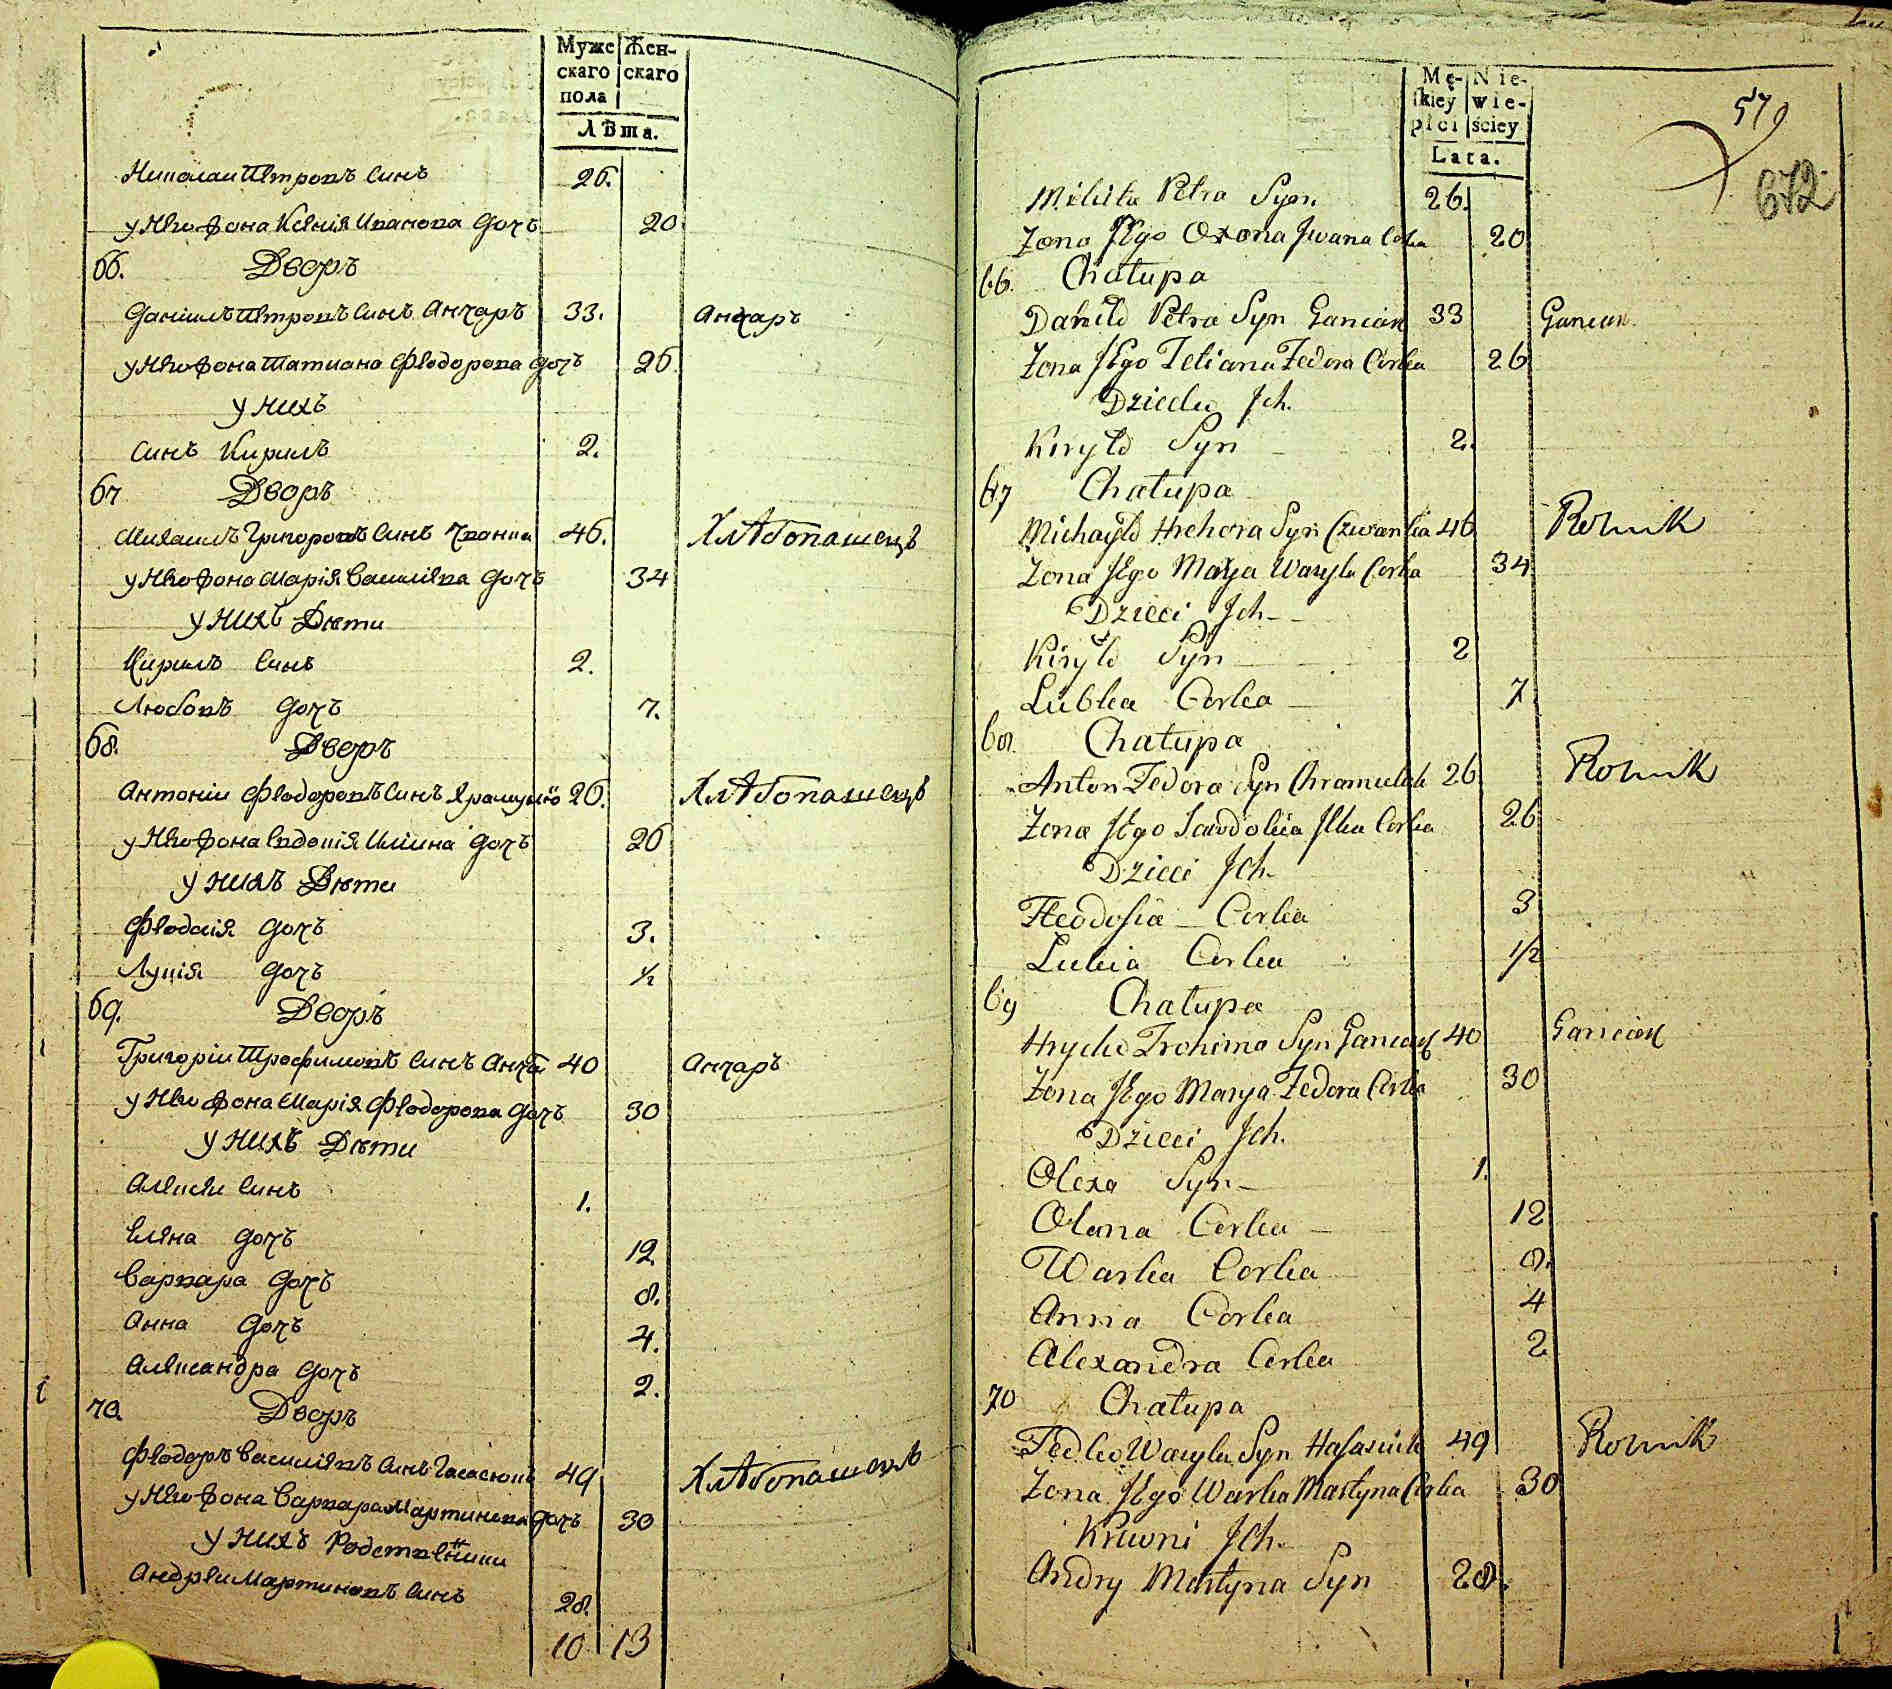 Муже Жен-
скаго скаго
пола
Лѣта.
Николаи Петровъ Синъ 26.
у Него Жона Ксения Иванова Дочъ 20
66. Дворъ
Даніилъ Петровъ Синъ Анчаръ 33. Анчаръ
у Него Жона Татиана Феодорова Дочъ 26.
у нихъ
Синъ Кирилъ 2.
67 Дворъ
Михаилъ Григоровъ Синъ 46. Хлѣбопашецъ
у Него Жона Марія Василиева Дочъ 34
у нихъ Дѣти
Кирилъ Синъ 2.
Любовъ Дочъ 7.
68. Дворъ
Антоніи Феодоровъ Синъ 26. Хлѣбопашецъ
у Него Жона Евдокія Илїина Дочъ 26
у нихъ Дѣти
Феодосія Дочъ 3.
Лукія Дочъ 1/2
69. Дворъ
Григоріи Трофимовъ Синъ 40 Анчаръ
у Него Жона Марія Феодорова Дочъ 30
у нихъ Дѣти
Алексеи Синъ 1.
Елена Дочъ 12
Варвара Дочъ 8.
Анна Дочъ 4.
Александра Дочъ 2.
70. Дворъ
Феодоръ Василіевъ Синъ 49 Хлѣбопашецъ
у Него Жона Варвара Мартинова Дочъ 30
у нихъ Родственики
Андреи Мартиновъ Синъ 28.
10 13
579
672
Mę- Nie-
skiey wie-
płci ściey
Lata.
Petra Syn 26.
Zona Jego Oxona Jwana Corka 20
66. Chatupa
Danilo Petra Syn Ganciar 33 Ganciar
Zona Jego Tetiana Fedora Corka 26
Jch.
Kirylo Syn 2.
67 Chatupa
Michaylo Hrehora Syn 46 Rolnik
Zona Jego Marya Wasyla Corka 34
Dzieci Jch
Kirylo Syn 2
Lubka Corka 7
68. Chatupa
Anton Fedora Syn 26 Rolnik
Zona Jego Jlka Corka 26
Dzieci Jch.
Teodosia Corka 3
Lukia Corka 1/2
69 Chatupa
Hrycko Trohima Syn 40
Zona Jego Marya Fedora Corka 30
Dzieci Jch.
Olexa Syn 1.
Olena Corka 12
Warka Corka 8.
Anna Corka 4
Alexandra Corka 2
70 Chatupa
Fedko Wasyla Syn 49 Rolnik
Zona Jego Warka Martyna Corka 30
Krewni Jch.
Andry Martyna Syn 28.